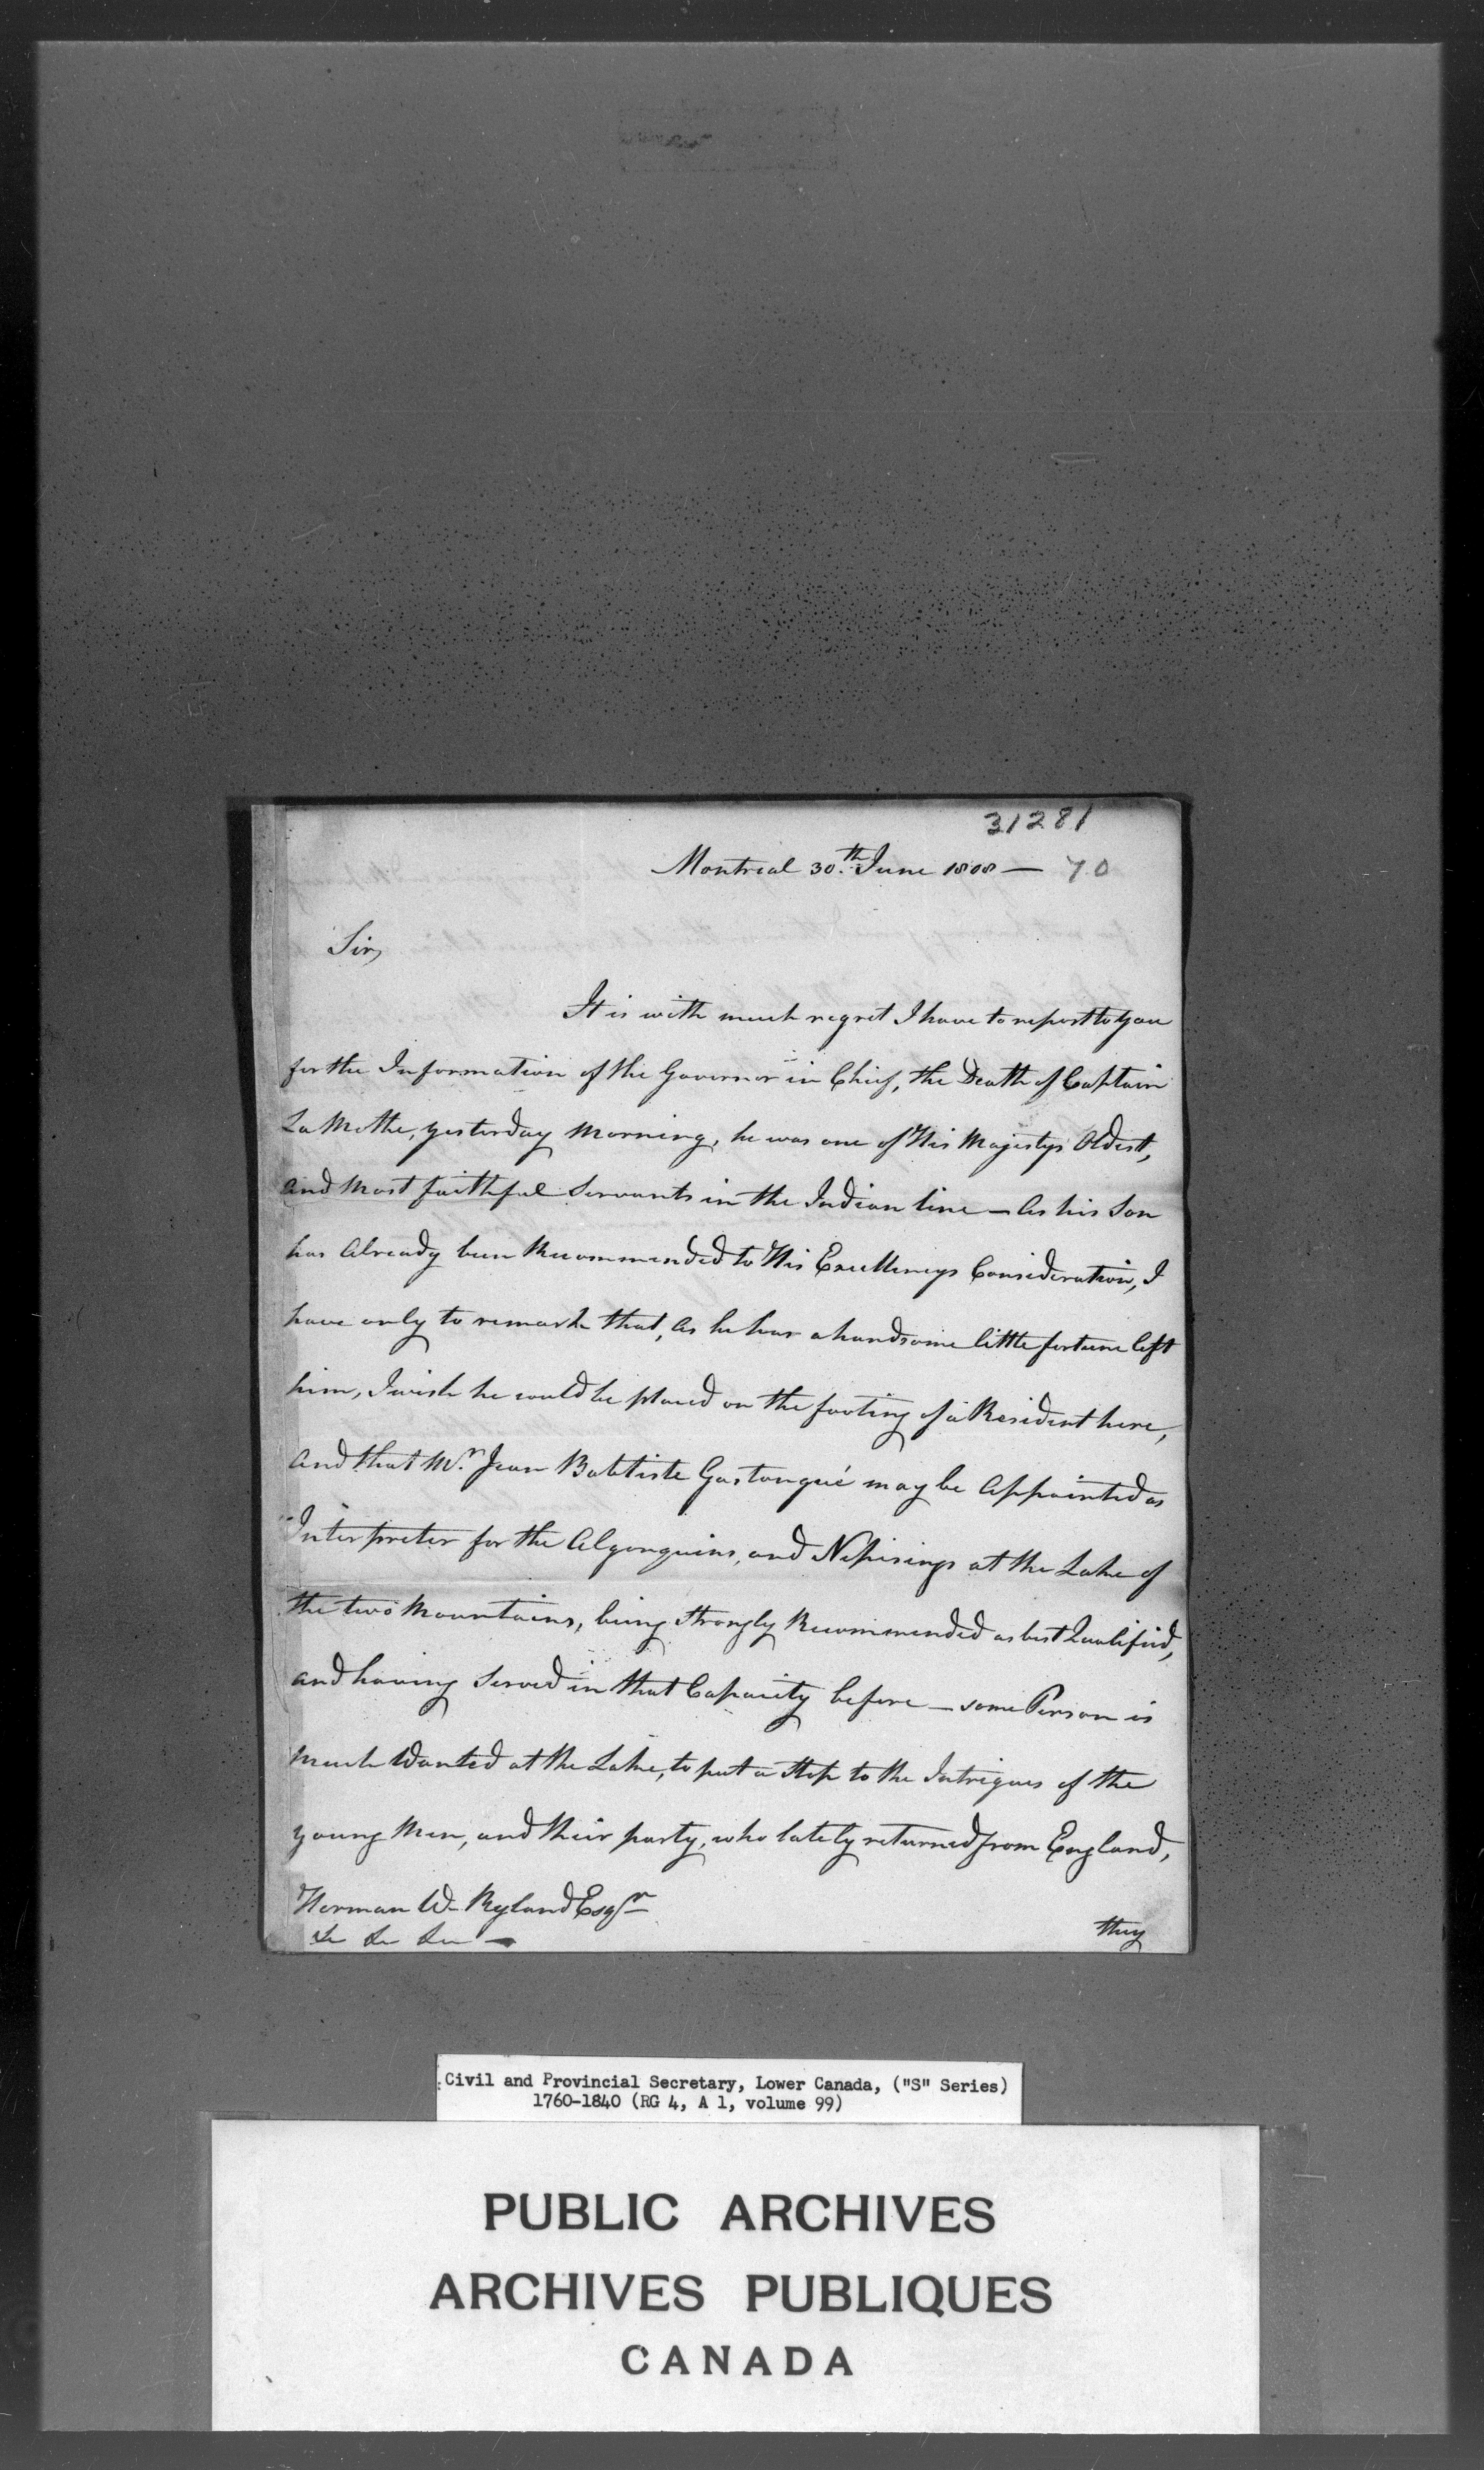 31281
Montreal 30.th June 1808 — 70
Sir,
It is with much regret I have to report to you
for the Information of the Governor in Chief, the Death of Captain
La Mothe, yesterday Morning, he was one of His Majestys Oldest,
and Most faithful Servants in the Indian line — As his Son
has Already been Recommended to His Excellencys Consideration, I
have only to remark that, As he has a handsome little fortune left
him, I wish he could be placed on the footing of a Resident here,
and that Mr. Jean Babtiste Gastongué may be Appointed as
Interpreter for the Algonquins, and Nipisings at the Lake of
the two Mountains, being strongly Recommended as best Qualified,
and having Served in that Capacity before — some Person is
Much Wanted at the Lake, to put a Stop to the Intrigues of the
young Men, and their party, who lately returned from England,
Herman W. Ryland Esqr
&c &c &c —
they
Civil and Provincial Secretary, Lower Canada, ("S" Series)
1760-1840 (RG 4, A 1, volume 99)
PUBLIC ARCHIVES
ARCHIVES PUBLIQUES
CANADA